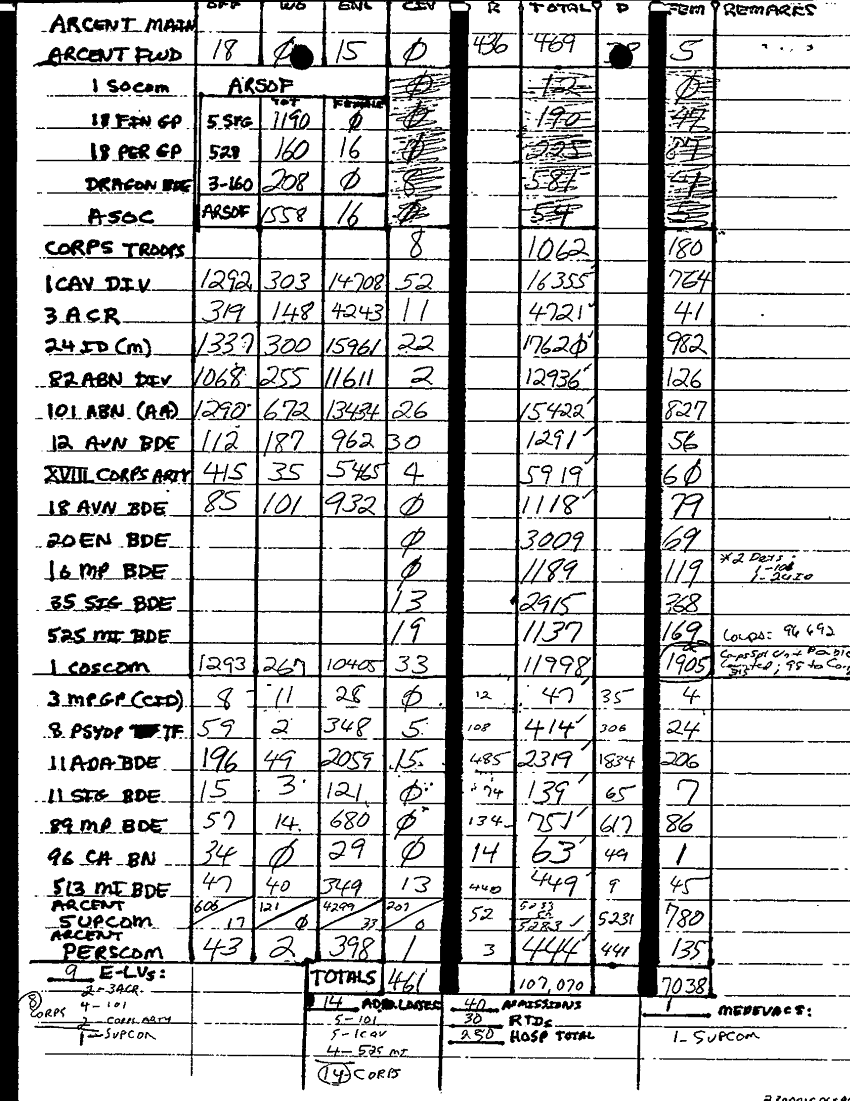 OFF WO ENL CIV R TOTAL P FEM REMARKS
ARCENT MAIN
ARCENT FWD 18 Ø 15 Ø 436 469 5
1 SOCOM ARSOF Ø 12 Ø
TOT FEMALE
18 FIN GP 5 SFG 1190 Ø Ø 190 47
18 PER GP 528 160 16 Ø 225
DRAGON BDE 3-160 208 Ø 8
ASOC ARSOF 1558 16 Ø 54
CORPS TROOPS 8 1062 180
1 CAV DIV 1292 303 14708 52 16355 764
3 ACR 319 148 4243 11 4721 41
24 ID (M) 1337 300 15961 22 1762Ø 982
82 ABN DIV 1068 255 11611 2 12936 126
101 ABN (AA) 1290 672 13434 26 15422 827
12 AVN BDE 112 187 962 30 1291 56
XVIII CORPS ARTY 415 35 5465 4 5919 6Ø
18 AVN BDE 85 101 932 Ø 1118 79
20 EN BDE Ø 3009 69
16 MP BDE Ø 1189 119
35 SIG BDE 13 2915 368
525 MI BDE 19 1137 169
1 COSCOM 1293 267 10405 33 11998 1905
3 MP GP (CID) 8 11 28 Ø 12 47 35 4
8 PSYOP TF 59 2 348 5 108 414 306 24
11 ADA BDE 196 49 2059 15 485 2319 1834 206
11 SIG BDE 15 3 121 Ø 74 139 65 7
89 MP BDE 57 14 680 Ø 134 751 617 86
96 CA BN 34 Ø 29 Ø 14 63 49 1
513 MI BDE 47 40 349 13 440 449 9 45
ARCENT 606 121 4299 207
SUPCOM 17 Ø 33 0 52 5283 5231 780
ARCENT
PERSCOM 43 2 398 1 3 444 441 135
9 E-LVs: TOTALS 461 107,070 7038
2-3ACR 14 ADD. LOSSES 40 ADMISSIONS 1 MEDEVACS:
8 CORPS 4-101 5-101 30 RTDs
5-1CAV 250 HOSP TOTAL
1-SUPCOM 4-525 MI 1-SUPCOM
14 CORPS